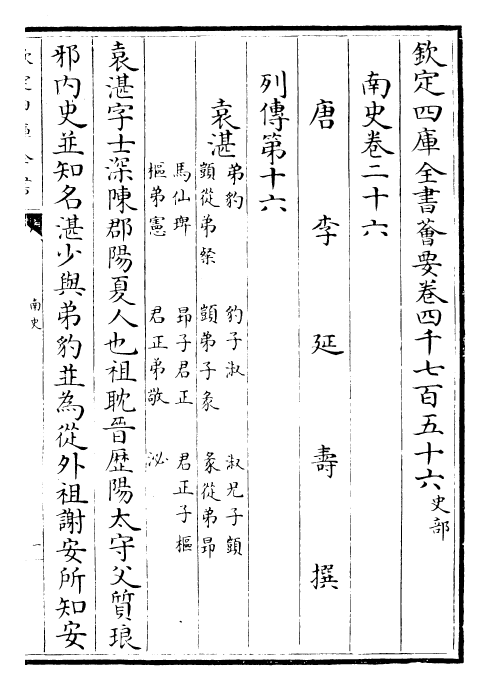 欽定四庫全書薈要卷四千七百五十六史部
南史卷二十六
唐李延壽撰
列傳第十六
袁湛
弟豹 豹子淑 淑兄子顗
顗從弟粲 顗弟子彖 彖從弟昂
馬仙琕 昂子君正 君正子樞
樞弟憲 君正弟敬 泌
袁湛字士深陳郡陽夏人也祖耽晉歷陽太守父質琅
邪内史並知名湛少與弟豹並為從外祖謝安所知安
欽定四庫全書
南史
一